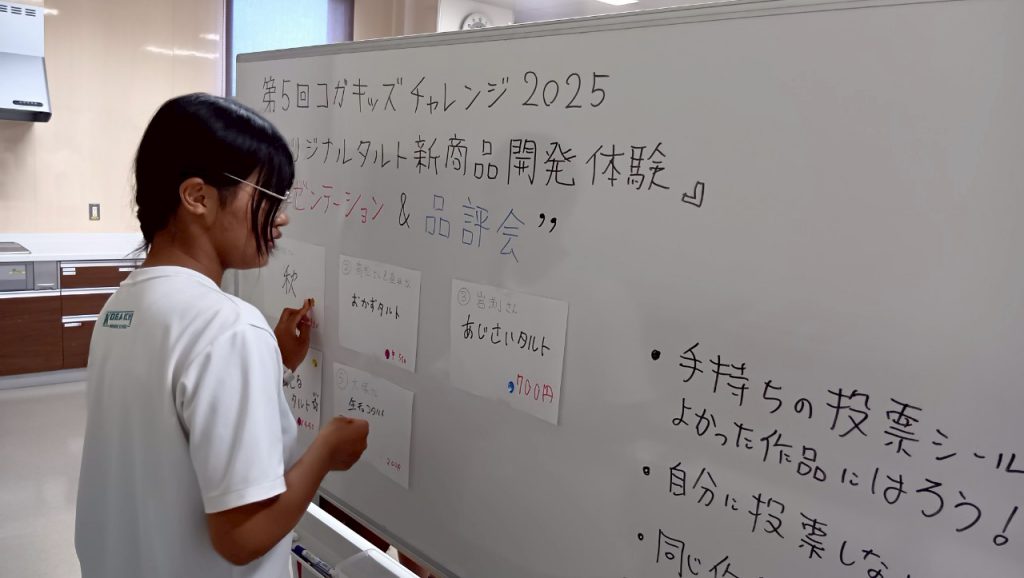 第5回コガキッズチャレンジ2025
リジナルタルト新商品開発体験』
ゼンテーション & 品評会”
秋
②
おかずタルト
③岩渕さん
あじさいタルト
700円
タルト☆
⑤
生チョコタルト
・手持ちの投票シール
よかった作品にはろう!
・自分に投票しな
・同じ作